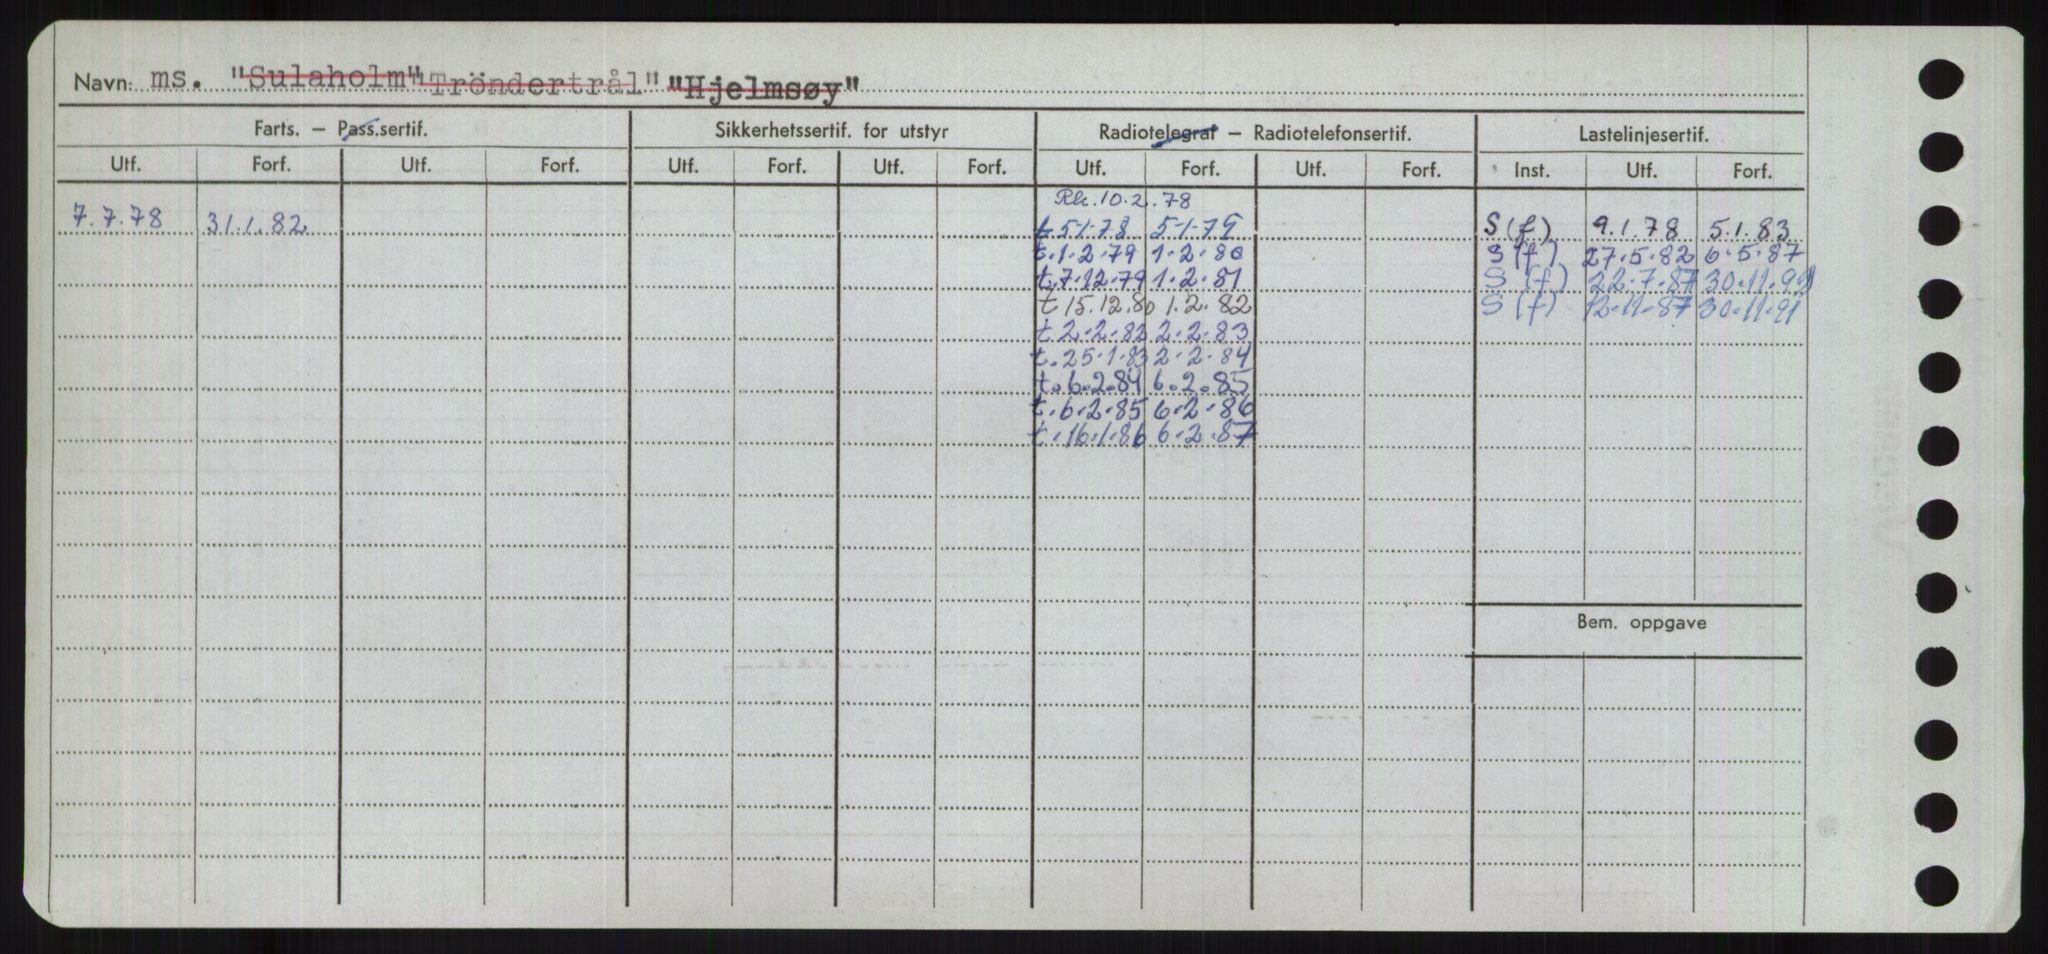 Navn: ms. "Sulaholm" "Tröndertrål" "Hjelmsøy"
Farts. – Pass.sertif. Sikkerhetssertif. for utstyr Radiotelegraf – Radiotelefonsertif. Lastelinjesertif.
Utf. Forf. Utf. Forf. Utf. Forf. Utf. Forf. Utf. Forf. Utf. Forf. Inst. Utf. Forf.
Rk. 10.2.78
7.7.78 31.1.82 t 5.1.78 5.1.79 S(f) 9.1.78 5.1.83
t.1.2.79 1.2.80 S(f) 27.5.82 6.5.87
t.7.12.79 1.2.81 S(f) 22.7.87 30.11.91
t 15.12.80 1.2.82 S(f) 12.11.87 30.11.91
t.2.2.82 2.2.83
t.25.1.83 2.2.84
t.6.2.84 6.2.85
t.6.2.85 6.2.86
t.16.1.86 6.2.87
Bem. oppgave